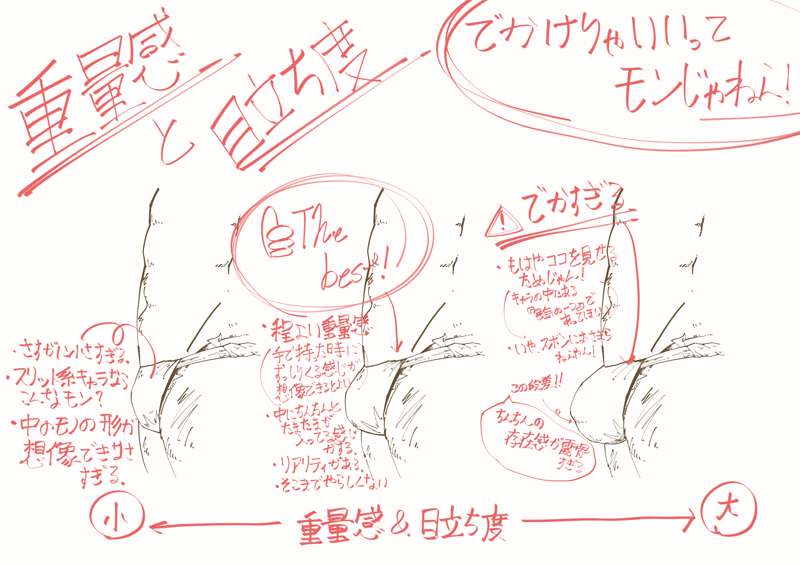 重量感
と
目立ち度
でかけりゃいいって
モンじゃねえ!
The
best!!
でかすぎる
・もはやココを見せる
ためじゃん!
キャラの中にある
・いや、ズボンにおさまら
ねぇやん!
この絵愛!!
ちんちんの
存在感が露骨
すぎる
・さすがに小さすぎる。
・スリット系キャラなら
こんなモン?
・中のモノの形が
想像できなさ
すぎる。
・程よい重量感
手で持った時に
ずっしりくる感じが
想像できるとよい
・中にちんちんと
たまたまが
入ってる感じ
がする。
・リアリティがある。
・そこまでやらしくない
小
重量感&目立ち度
大